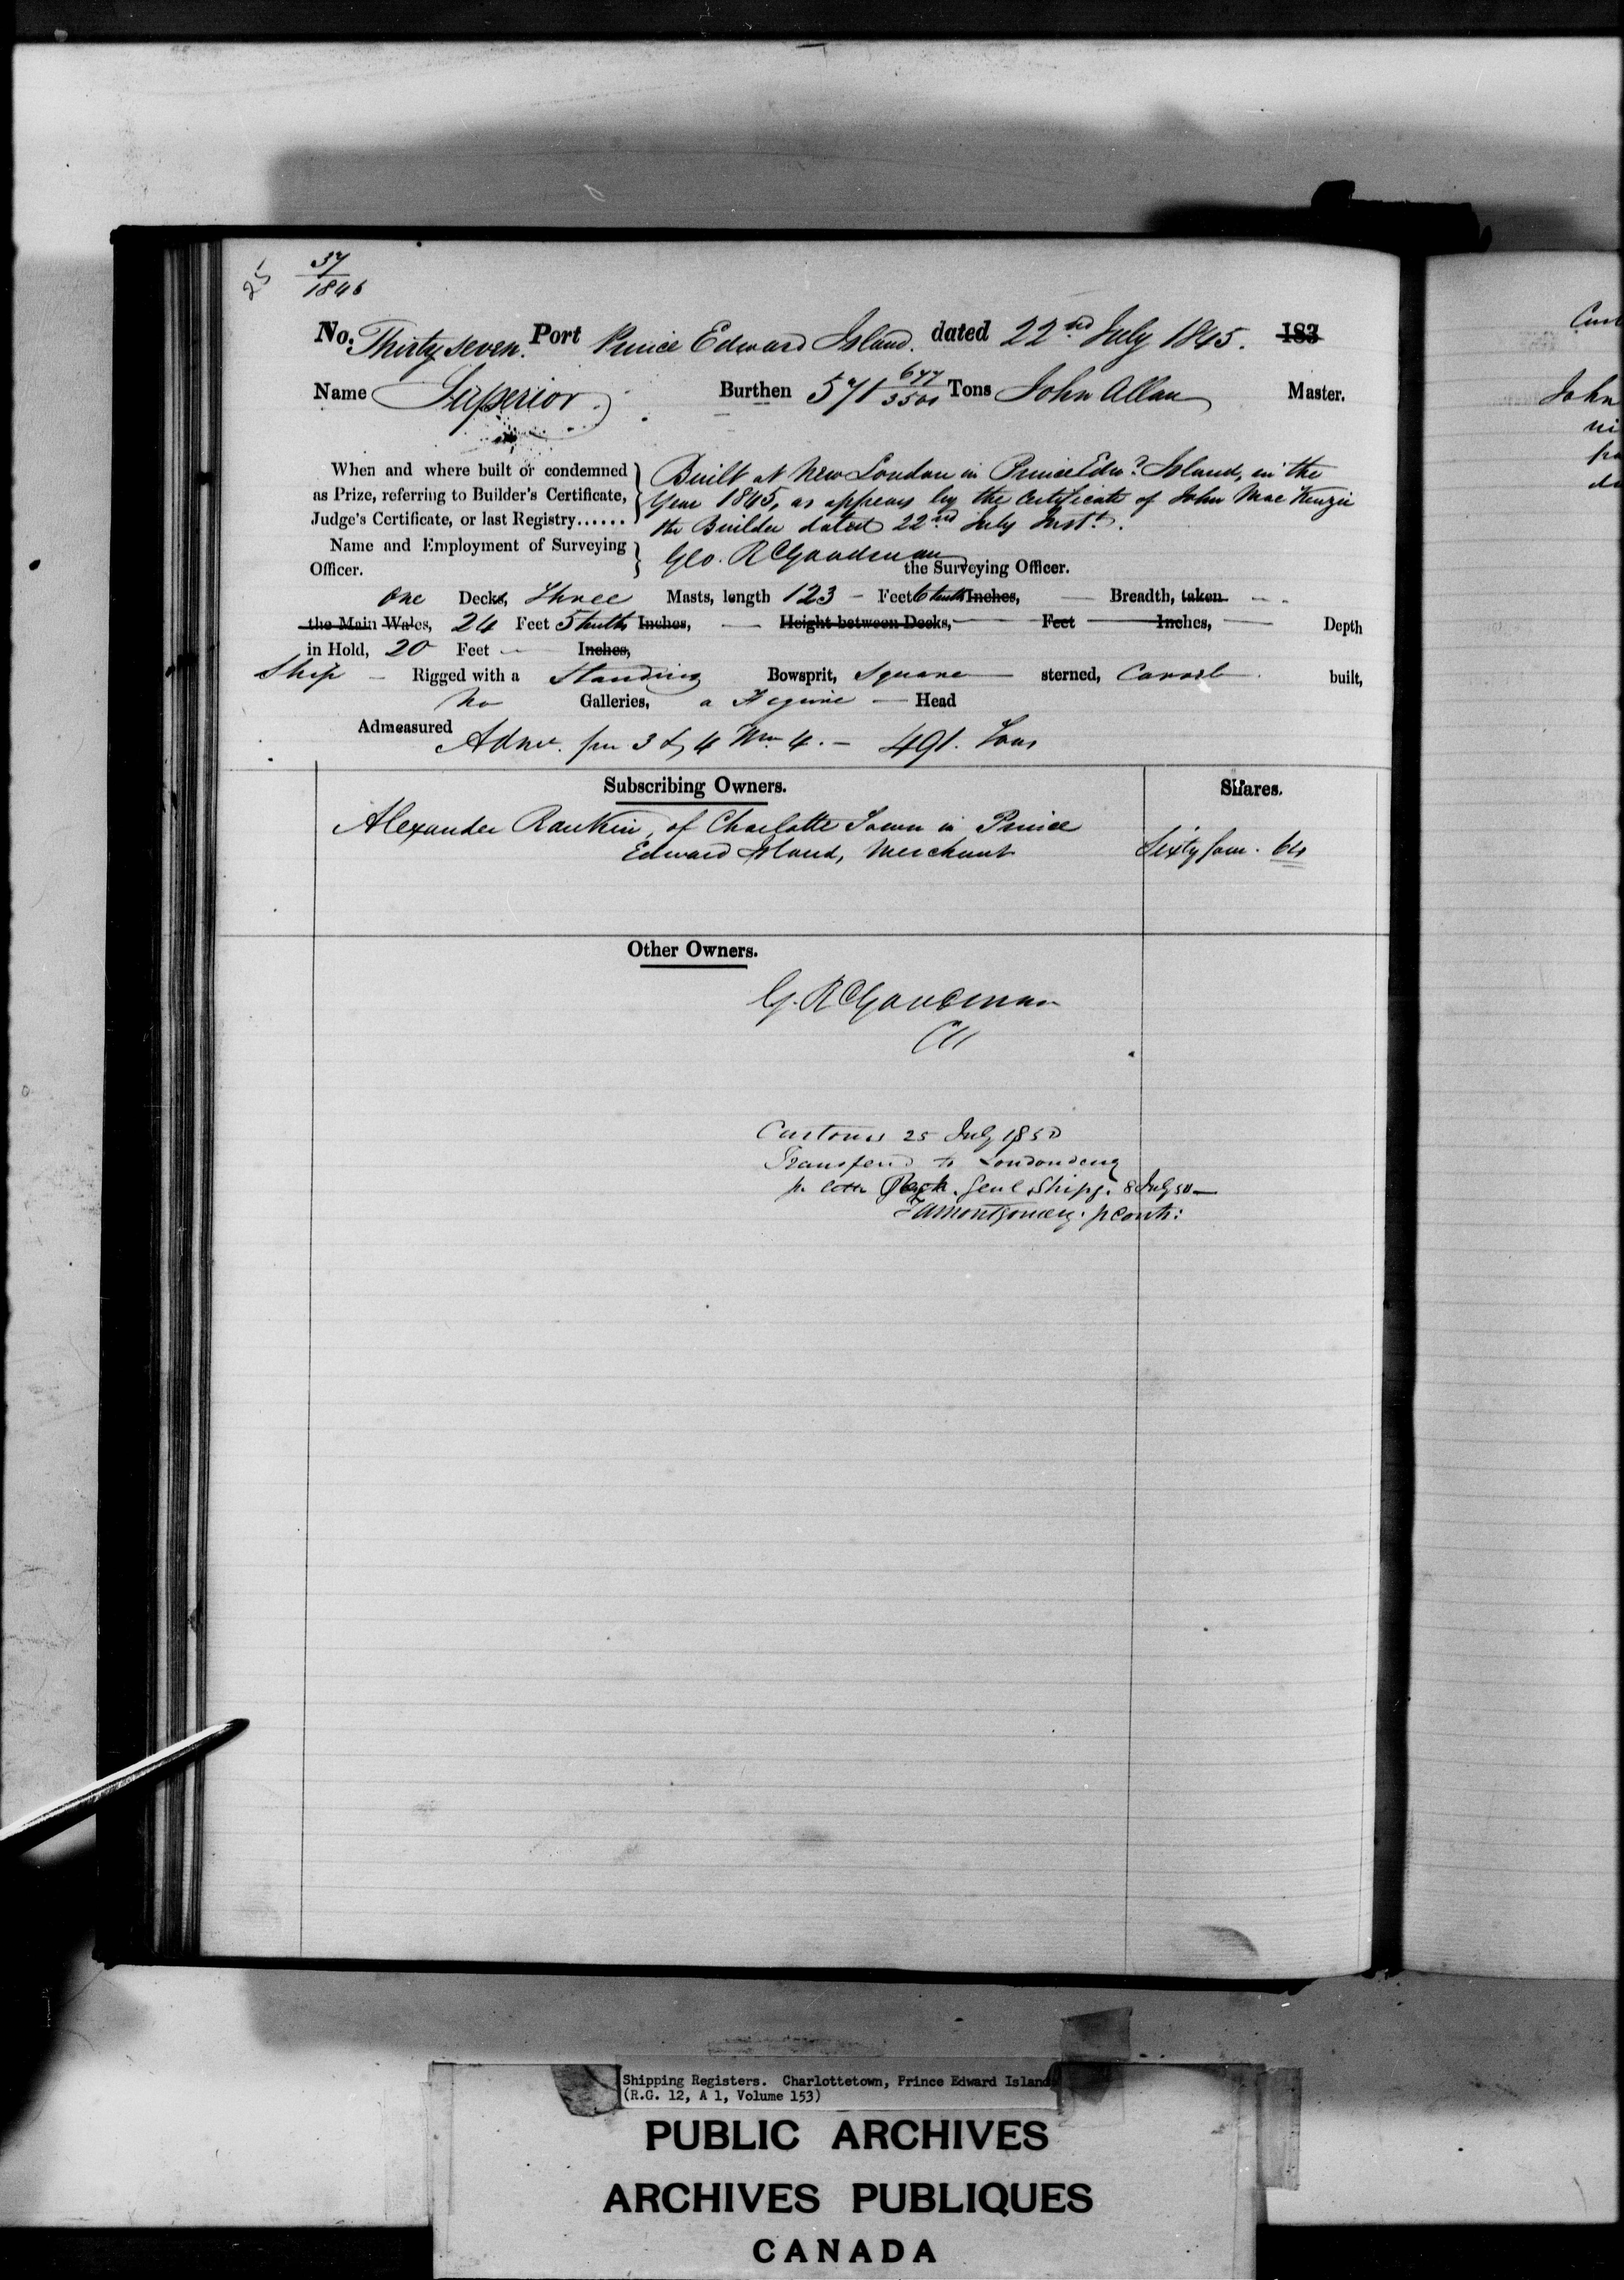 25
37
1845
No. Thirty seven. Port Prince Edward Island. dated 22nd July 1845. 183
Name Superior. Burthen 571 677/3500 Tons John Allan Master.
When and where built or condemned as Prize, referring to Builder's Certificate, Judge's Certificate, or last Registry......
Built at New London in Prince Edwd. Island, in the
Year 1845, as appears by the Certificate of John Mac Kenzie
the Builder dated 22nd July Inst.
Name and Employment of Surveying Officer.
Geo. R Goodman the Surveying Officer.
One Decks, Three Masts, length 123 - Feet 6 tenths Inches, Breadth, taken
the Main Wales, 24 Feet 5 tenths Inches, Height between Decks, Feet Inches, Depth
in Hold, 20 Feet Inches,
Ship - Rigged with a Standing Bowsprit, Square sterned, Carvel built,
No Galleries, a Figure Head
Admeasured Adme. pr 3 & 4 Wm. 4. - 491. Tons
Subscribing Owners. Shares.
Alexander Rankin, of Charlotte Town in Prince
Edward Island, Merchant Sixty four. 64
Other Owners.
G. R Goodman
Customs 25 July 1850
Transferd to Londonderry
Genl Shipg. 8 July 50
Montgomery. p Contr:
John
Shipping Registers. Charlottetown, Prince Edward Island
(R.G. 12, A 1, Volume 153)
PUBLIC ARCHIVES
ARCHIVES PUBLIQUES
CANADA